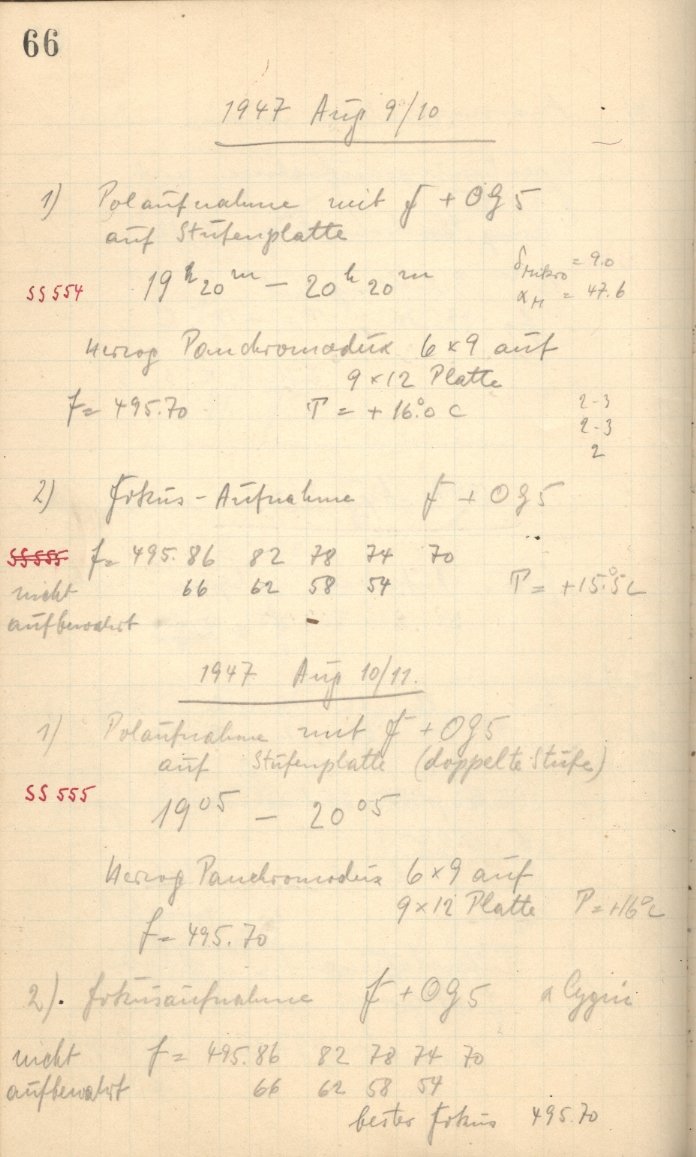 66
1947 Aug 9/10
1) Polaufnahme mit f + OG5
auf Stufenplatte
SS 554 19ʰ20ᵐ — 20ʰ20ᵐ δMikro = 9.0
αM = 47.6
Herzog Panchromodux 6×9 auf
9×12 Platte
f = 495.70 T = +16°.0 C 2-3
2-3
2
2) Fokus-Aufnahme f + OG5
SS555 f = 495.86 82 78 74 70
nicht 66 62 58 54 T = +15°.5 C
aufbewahrt
1947 Aug 10/11.
1) Polaufnahme mit f + OG5
auf Stufenplatte (doppelte Stufe)
SS 555 19⁰⁵ — 20⁰⁵
Herzog Panchromodux 6×9 auf
9×12 Platte T = +16°C
f = 495.70
2). Fokusaufnahme f + OG5 α Cygni
nicht f = 495.86 82 78 74 70
aufbewahrt 66 62 58 54
bester Fokus 495.70